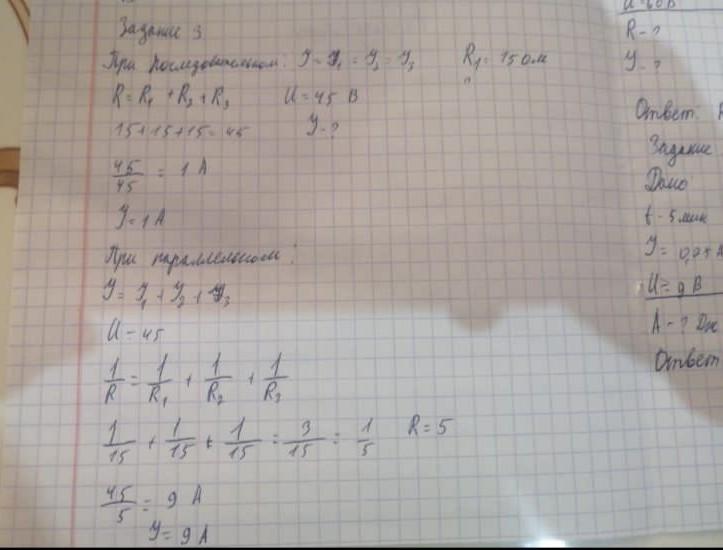 Задание 3
При последовательном: У = У₁ = У₂ = У₃ R₁ = 15 ом
R = R₁ + R₂ + R₃ U = 45 В
15 + 15 + 15 = 45 У - ?
45/45 = 1 А
У = 1 А
При параллельном:
У = У₁ + У₂ + У₃
U = 45
1/R = 1/R₁ + 1/R₂ + 1/R₃
1/15 + 1/15 + 1/15 = 3/15 = 1/5 R = 5
45/5 = 9 А
У = 9 А
R - ?
У - ?
Ответ:
Задание
Дано
t - 5 мин
У = 0,25 А
U = 9 В
А - ? Дж
Ответ